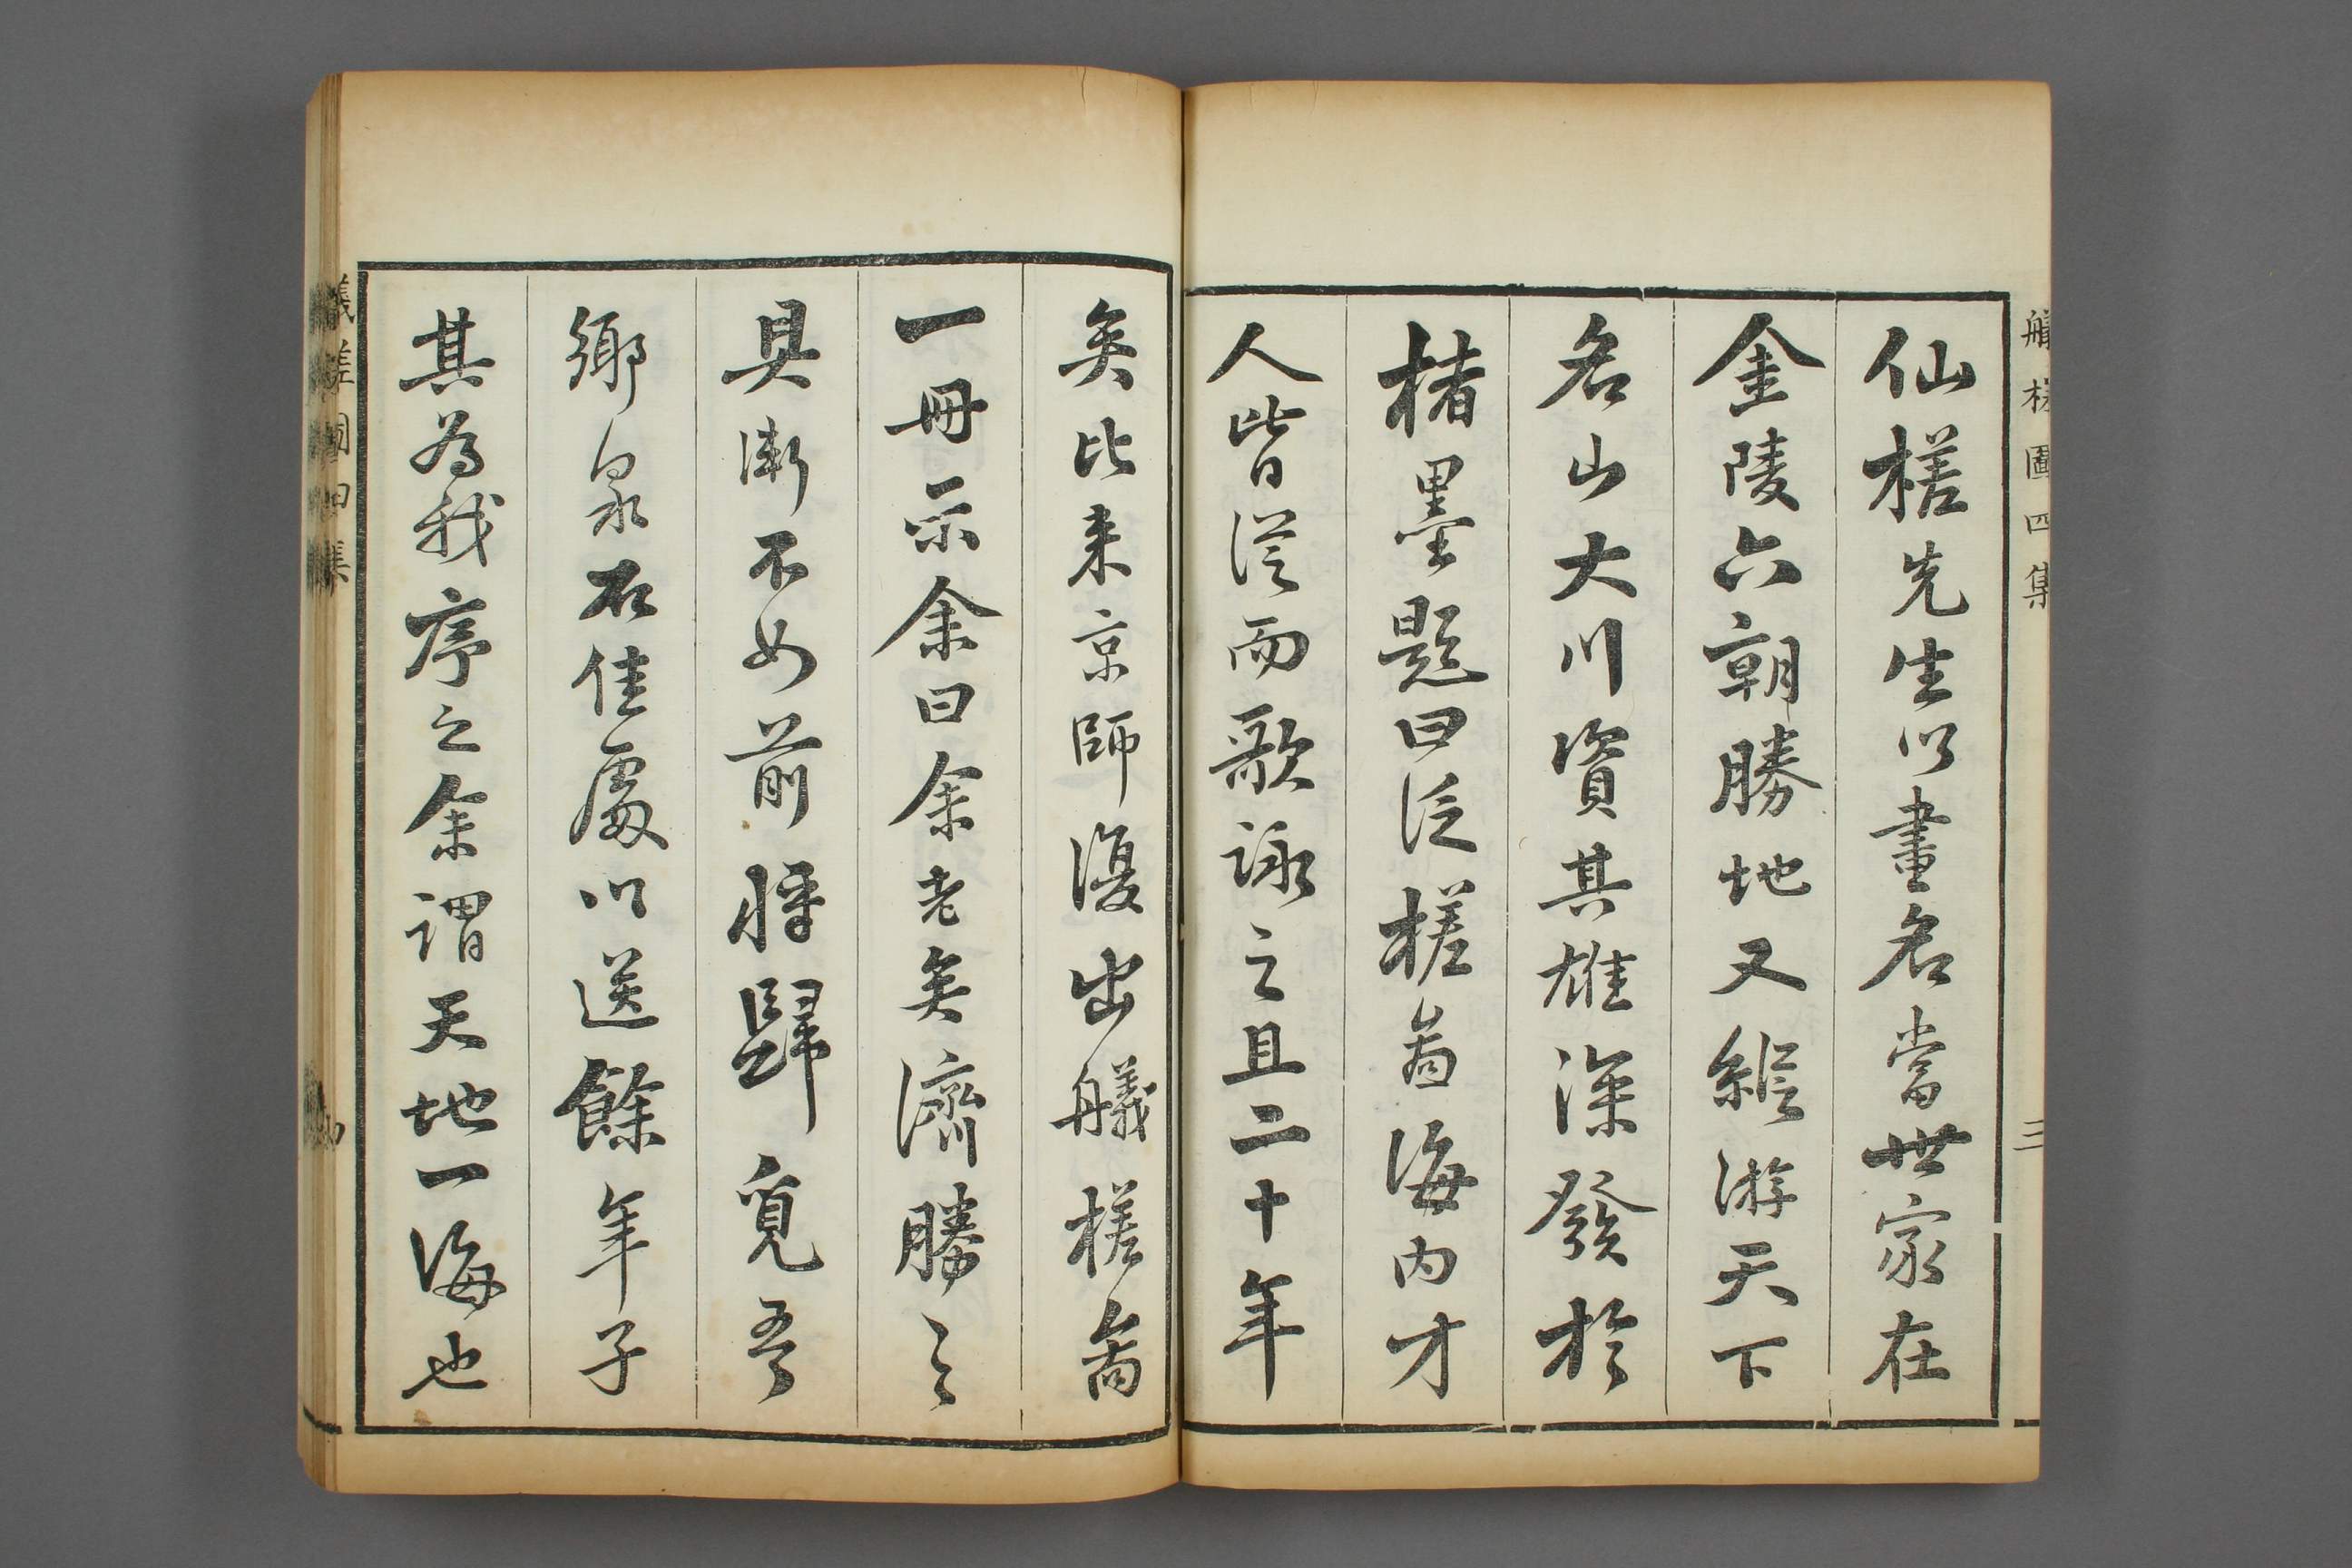 仙槎先生以畫名當世家在
金陵六朝勝地又縱游天下
名山大川資其雄深發於
楮墨題曰泛槎啚海内才
人皆從而歌詠之且二十年
矣比来京師復出艤槎啚
一冊示余曰余老矣濟勝之
具漸不如前將歸覓吾
鄉泉石佳處以送餘年子
其為我序之余謂天地一海也
艤槎圖四集
三
艤槎圖四集
四